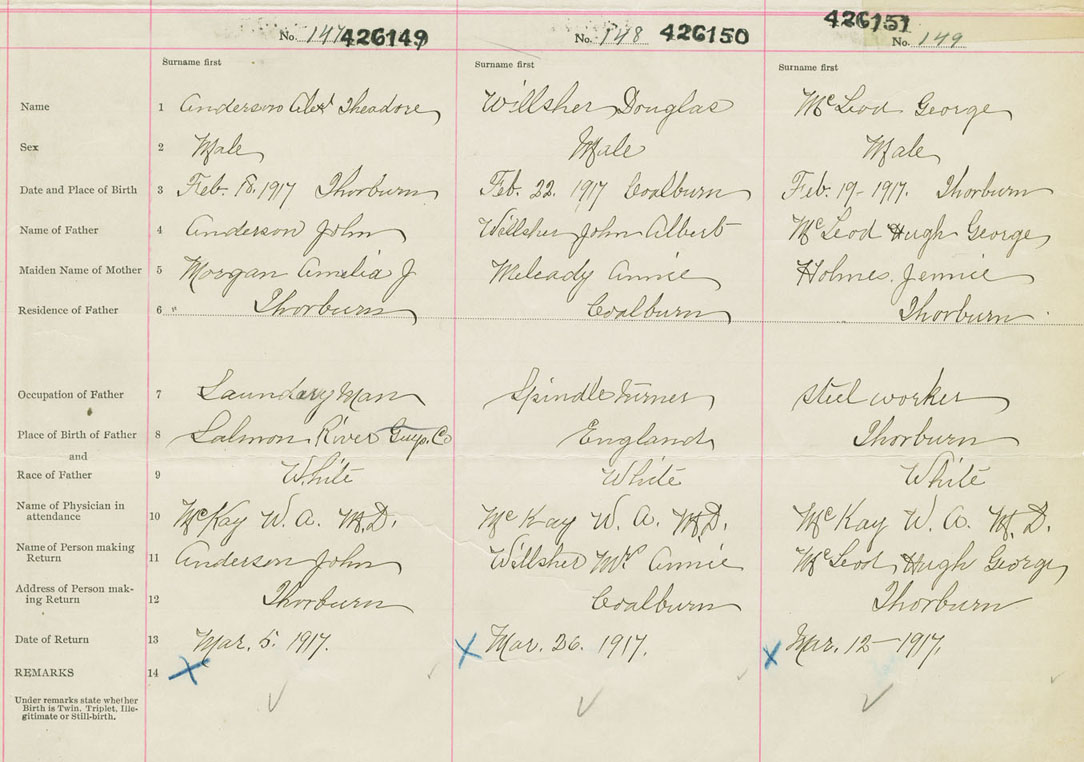 No. 147 426149 No. 148 426150 426151 No. 149
Surname first Surname first Surname first
Name 1 Anderson Alexr Theadore Willsher Douglas McLeod George
Sex 2 Male Male Male
Date and Place of Birth 3 Feb. 18, 1917 Thorburn Feb. 22. 1917 Coalburn Feb. 19-1917. Thorburn
Name of Father 4 Anderson John Willsher John Albert McLeod Hugh George
Maiden Name of Mother 5 Morgan Amelia J Meleady Annie Holmes. Jennie
Residence of Father 6 " Thorburn Coalburn Thorburn
Occupation of Father 7 Laundry Man Spindle Turner steel worker
Place of Birth of Father 8 Salmon River Guys. Co England Thorburn
and
Race of Father 9 White White White
Name of Physician in
attendance 10 McKay W. A. M.D. McKay W. A. M.D. McKay W. A. M.D.
Name of Person making
Return 11 Anderson John Willsher Mrs Annie McLeod Hugh George
Address of Person mak-
ing Return 12 Thorburn Coalburn Thorburn
Date of Return 13 Mar. 5. 1917. X Mar. 26. 1917. X Mar. 12-1917.
REMARKS 14 X
Under remarks state whether
Birth is Twin. Triplet. Ille-
gitimate or Still-birth.